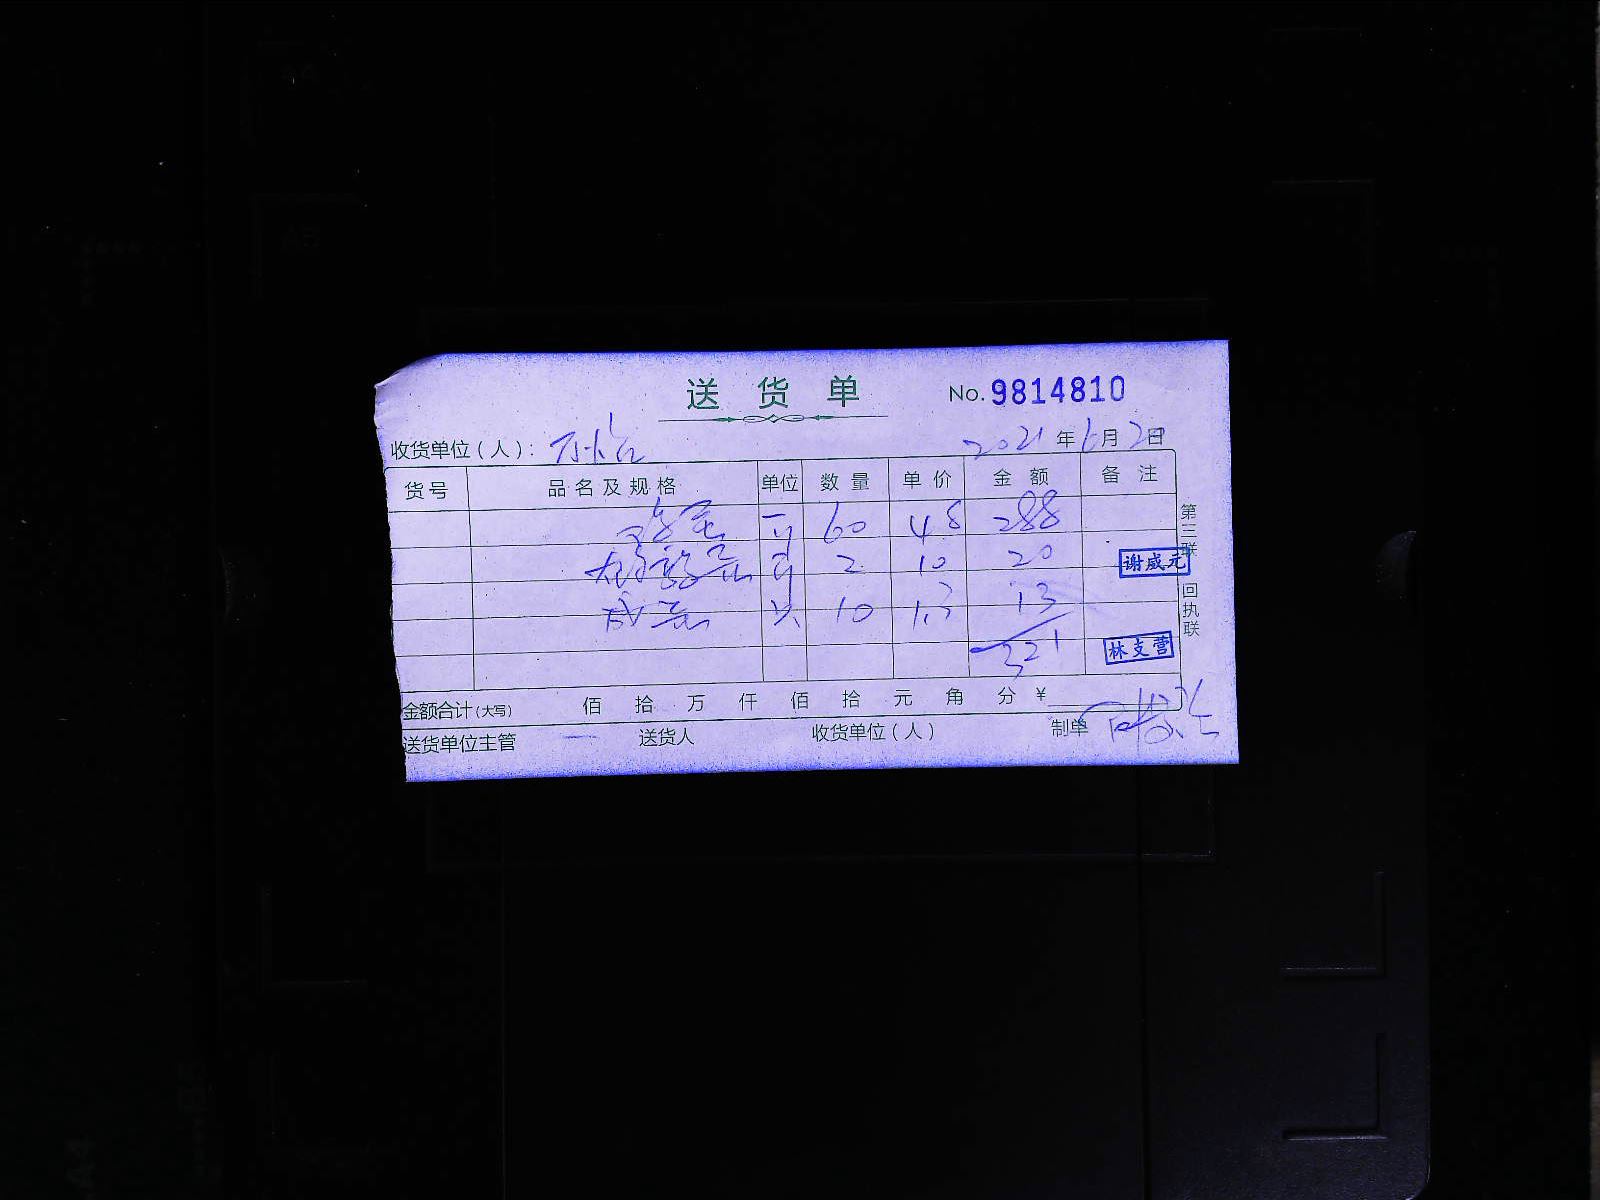 送货单 No. 9814810
收货单位（人）： 2021年6月2日
货号 品名及规格 单位 数量 单价 金额 备注
鸡蛋 斤 60 4.8 288
斤 2 10 20
咸蛋 只 10 1.3 13
321
第三联 回执联
谢威元
林支营
金额合计（大写） 佰 拾 万 仟 佰 拾 元 角 分 ¥
送货单位主管 送货人 收货单位（人） 制单